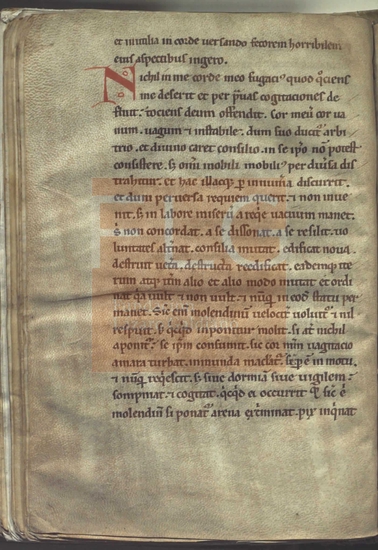 et inutilia in corde uersando fetorem horribilem
eius aspectibus ingero.
Nichil in me corde meo fugaci⁹ quod q̊ciens
me deserit et per p̃uas cogitaciones de
fluit. tociens deum offendit. Cor meũ cor ua
num. uagum ⁊ instabile. dum suo ducit᷑ arbi
trio. et diuino caret consilio. in se ip̃o nõ potest
consistere. s̄ om̃i mobili mobili⁹ per diũsa dis
trahitur. et hac illacq̨ p̱ discurrit.
et dum per diuersa requiem querit. ⁊ non inue
nit. s̄ in labore miserũ a reqe uacuum manet.
s̄ non concordat. a se dissonat. a se resilit. uo
luntates alt̃nat. consilia mutat. edificat noua.
destruit uet̃a. destructa reedificat. eademq̨ ite
rum atq̨ it̃m alio et alio modo mutat et ordi
nat qa uult ⁊ non uult. ⁊ nũq̃ in eodẽ statu per
manet. Sic eni molendinũ uelocit̃ uoluit᷑ ⁊ nil
respuit. s̄ qicqd inponitur molit. si at̃ nichil
aponit᷑. se ip̃m consumit. sic cor uagnacio
amara turbat. inmunda macłat. sep̱ ẽ in motu.
⁊ nũq̃ reqescit. s̄ siue dormiã siue uigilem.
sompniat. ⁊ cogitat. qcqd ei occurrit sic
molendinũ si ponat᷑ arena ext̃minat. pix inqinat